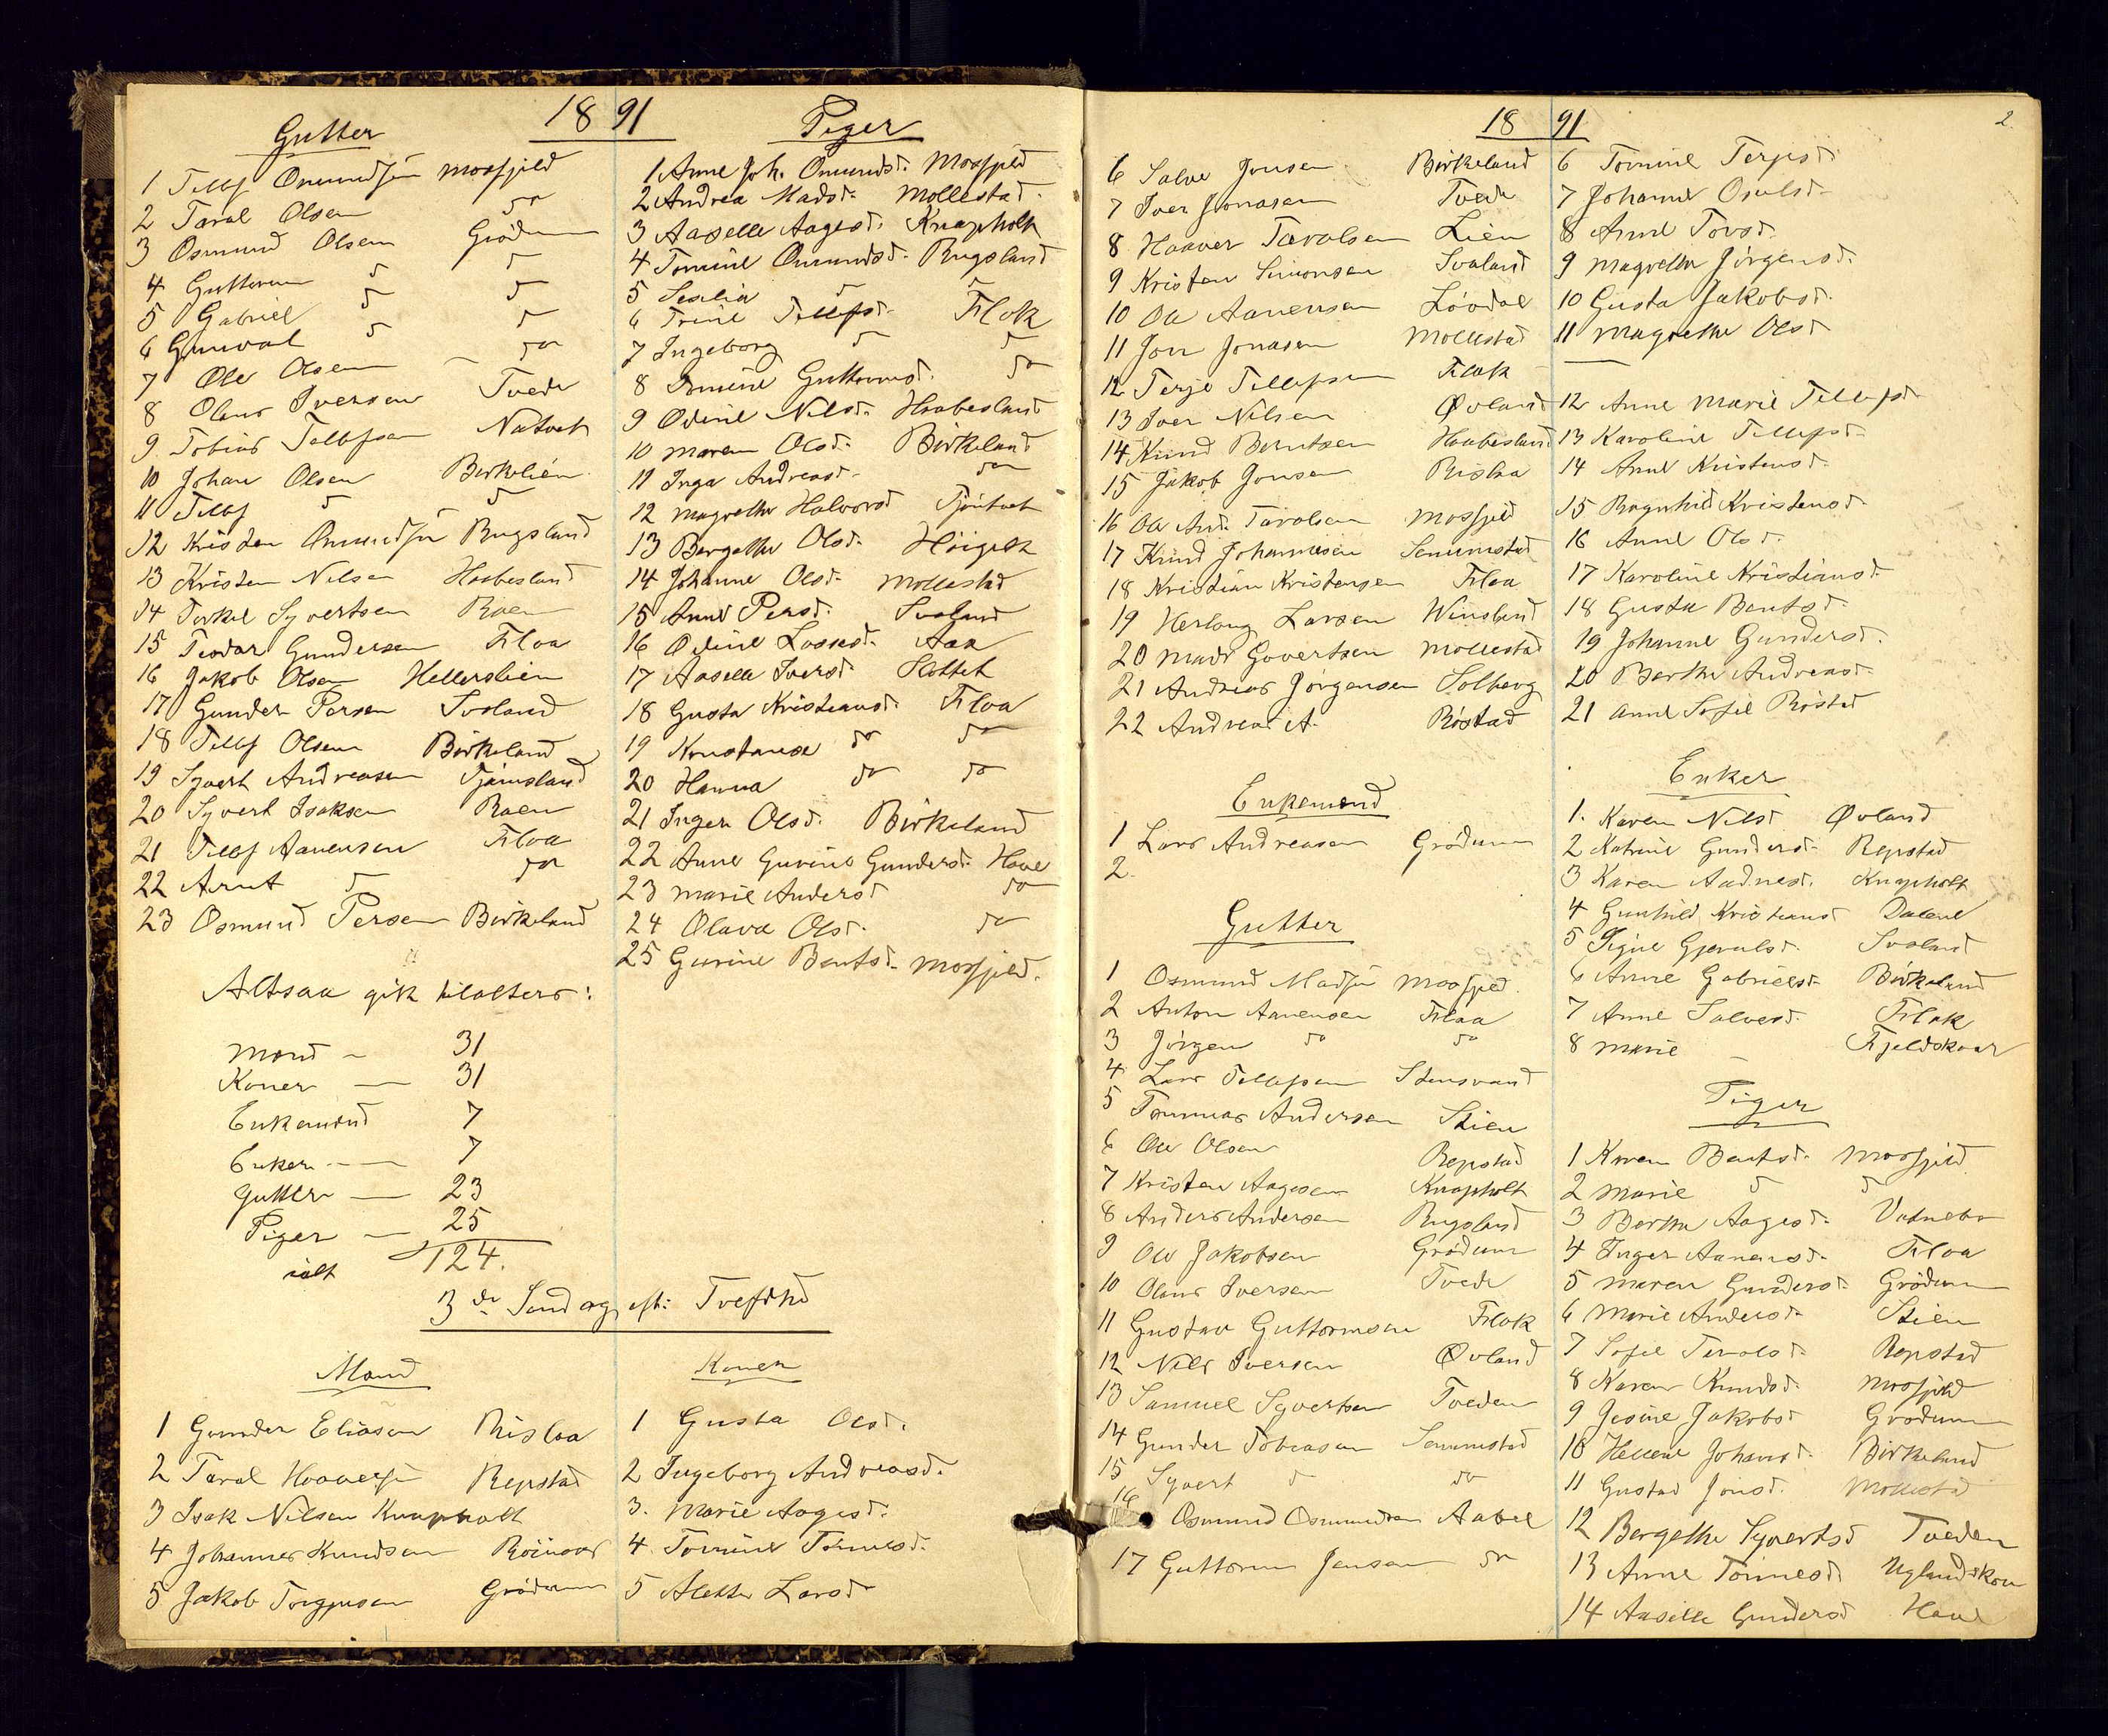 18 91
Gutter
1 Tellf Omundsen Mosfjeld
2 Taral Olsen do
3 Osmund Olsen Grødum
4 Guttorm d d
5 Gabriel d d
6 Gunval d d
7 Ole Olsen do
8 Olaus Iversen Tvede
9. Tobias Tellefsen Natvet
10 Johan Olsen Birkelien
11 Tellf d d
12 Kristen Omundsen Rugsland
13 Kristen Nilsen Haabesland
14 Terkel Syvertsen Roen
15 Teodor Gundersen Floa
16 Jakob Olsen Hellerslien
17 Gunder Persen Svaland
18 Tellf Olsen Birkeland
19 Syvert Andreasen Tjømsland
20 Syvert Isaksen Roen
21 Tellf Aanensen Floa
22 Arnt d do
23 Osmund Persen Birkeland
Altsaa gik tilalters:
Mænd - 31
Koner - 31
Enkemænd 7
Enker - 7
Gutter - 23
Piger - 25
ialt 124.
Piger
1 Anne Joh. Omundsd. Mosfjeld
2 Andrea Madsd. Mollestad
3 Aaselle Aagesd. Knapholt
4 Tomine Omundsd. Rugsland
5 Seselia d d
6 Trine Tellefsd. Flak
7 Ingeborg d d
8 Tomine Guttormsd. do
9 Odine Nilsd. Haabesland
10 Maren Olsd. Birkeland
11 Inga Andreasd. do
12 Magrethe Halvorsd Tjøntvet
13 Bergethe Olsd. Høigilt
14 Johanne Olsd. Mollestad
15 Anne Persd. Svaland
16 Odine Lassesd. Aas
17 Aaselle Iversd. Slottet
18 Gusta Kristiansd. Floa
19 Konstanse do do
20 Hanna do do
21 Inger Olsd. Birkeland
22 Anne Gurine Gundersd. Have
23 Marie Andersd do
24 Olava Olsd. do
25 Gurine Bentsd. Mosfjeld.
3de Søndag eft: Trefdhd
Mænd
1 Gunder Eliasen Risløa
2 Taral Haaversen Repstad
3 Isak Nilsen Knapholt
4 Johannes Knudsen Roinaas
5 Jakob Torgjusen Grødum
Koner
1 Gusta Olsd.
2 Ingeborg Andreasd.
3. Marie Aagesd.
4 Tomine Tønnesd.
5 Alette Larsd
18 91
2.
6 Salve Jonsen Birkeland
7 Iver Jonasen Tvede
8 Haaver Taralsen Lien
9 Kristen Simonsen Svaland
10 Ole Aanensen Løvdal
11 Jon Jonasen Mollestad
12 Terje Tellefsen Flak
13 Iver Nilsen Øvland
14 Knud Berntsen Haabesland
15 Jakob Jonsen Risløa
16 Ole And. Taralsen Mosfjeld
17 Knud Johannesen Senumstad
18 Kristian Kristensen Floa
19 Herlaug Larsen Winsland
20 Mads Govertsen Mollestad
21 Andreas Jørgensen Solberg
22 Andreas A. Røstad
6 Tomine Terjesd
7 Johanne Osulsd
8 Anne Torsd.
9 Magrethe Jørgensd.
10 Gusta Jakobsd.
11 Magrethe Olsd
—
12 Anne Marie Tellefsd.
13 Karoline Tellefsd.
14 Anne Kristensd.
15 Ragnhild Kristensd.
16 Anne Olsd.
17 Karoline Kristiansd.
18 Gusta Bentsd.
19 Johanne Gundersd.
20 Berthe Andreasd.
21 Anne Sofie Røstad
Enkemænd
1 Lars Andreasen Grødum
2.
Gutter
1 Osmund Madsen Mosfjeld.
2 Anton Aanensen Floa
3 Jørgen do do
4 Lars Tellefsen Stensvand
5 Tommas Andersen Stien
6 Ole Olsen Repstad
7 Kristen Aagesen Knapholt
8 Anders Andersen Rugsland
9 Ole Jakobsen Grødum
10 Olaus Iversen Tvede
11 Gustav Guttormsen Flak
12 Nils Iversen Øvland
13 Samuel Syvertsen Tveden
14 Gunder Tobiasen Senumstad
15 Syvert d do
16 Osmund Osmundsen Aabel
17 Guttorm Jensen do
Enker
1. Karen Nilsd Øvland
2 Katrine Gundersd. Repstad
3 Karen Aadnesd. Knapholt
4 Gunhild Kristiansd Dalene
5 Signe Gjeruldsd. Svaland
6 Anne Gabrielsd. Birkeland
7 Anne Salvesd. Flak
8 Marie - Fjeldskaar
Piger
1 Karen Bentsd. Mosfjeld
2 Marie d d
3 Berthe Aagesd. Vatnebo
4 Inger Aanensd. Floa
5 Maren Gundersd. Grødum
6 Marie Andersd. Stien
7 Sofie Teralsd. Repstad
8 Karen Knudsd. Mosfjeld
9 Jesine Jakobsd Grødum
10 Hellene Johansd. Birkeland
11 Gustad Jonsd. Mollestad
12 Bergethe Syvertsd Tveden
13 Anne Tønnesd. Uglandskou
14 Aaselle Gundersd Have